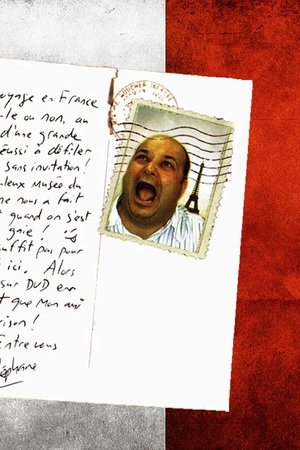 oyage en France
le ou non, au
d'une grande
éussi à défiler
sans invitation!
uleux Museo du
ne nous a fait
quand on s'est
gnie!
suffit pas pour
ici. Alors
sur DVD en
t que mon ami
rison!
Entre vous
éphane